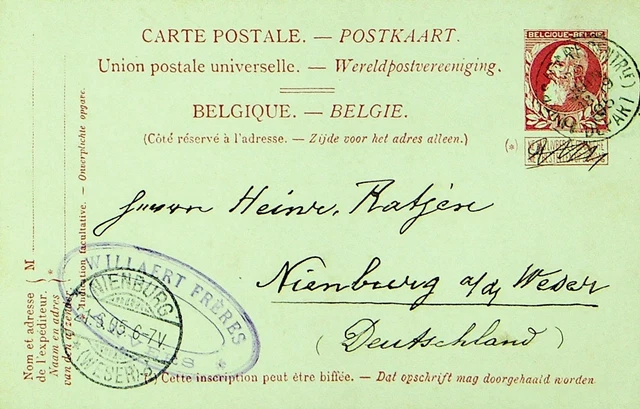 CARTE POSTALE. — POSTKAART.
Union postale universelle. — Wereldpostvereeniging.
BELGIQUE. — BELGIE.
(Côté réservé à l'adresse. — Zijde voor het adres alleen.)
BELGIQUE-BELGIE
DEPART
(*)
Herrn Heinr. Katjën
Nienburg a/d Weser
(Deutschland)
WILLAERT FRÈRES
NIENBURG
6-7V.
(WESER)
(*) Cette inscription peut être biffée. — Dat opschrift mag doorgehaald worden
M
Nom et adresse
de l'expéditeur.
Naam en adres
van den afzender.
Indication facultative. — Onverplichte opgave.